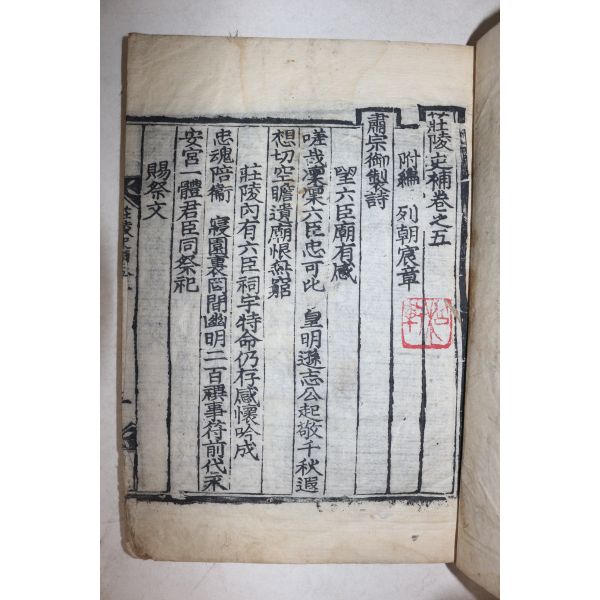 莊陵史補卷之五
附編 列朝宸章
肅宗御製詩
望六臣廟有感
嗟哉凜凜六臣忠可比 皇明遜志公起敬千秋遐
想切空瞻遺廟恨無窮
莊陵內有六臣祠宇特命仍存感懷吟成
忠魂陪衛 寢園裏 間幽明二百禩事符前代永
安宮一體君臣同祭祀
賜祭文